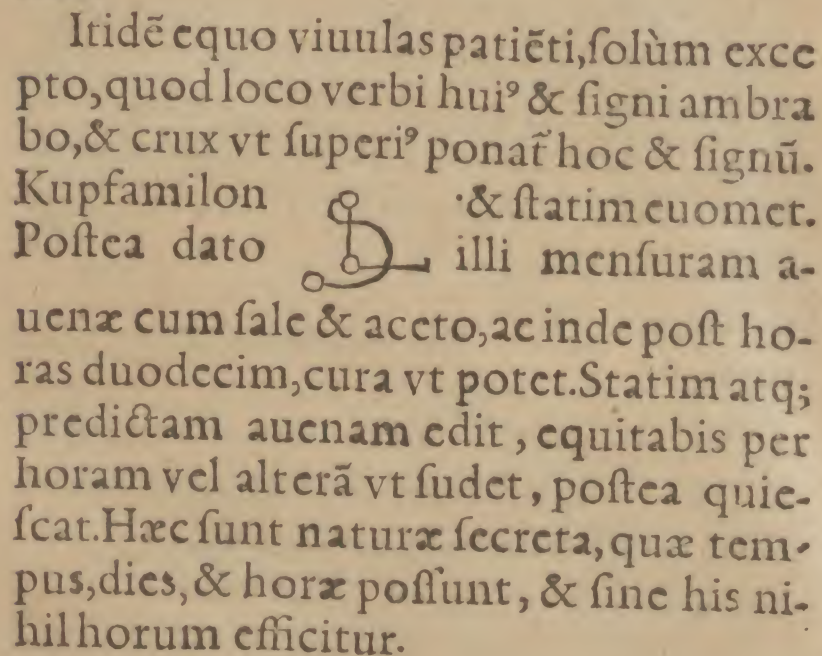 Itidẽ equo viuulas patiẽti, ſolùm exce
pto, quod loco verbi huiꝰ & ſigni ambra
bo, & crux vt ſuperiꝰ ponat̃ hoc & ſignũ.
Kupfamilon ·& ſtatim euomet.
Poſtea dato illi menſuram a-
uenæ cum ſale & aceto, ac inde poſt ho-
ras duodecim, cura vt potet. Statim atq;
predictam auenam edit, equitabis per
horam vel alterã vt ſudet, poſtea quie-
ſcat. Hæc ſunt naturæ ſecreta, quæ tem-
pus, dies, & horæ poſſunt, & ſine his ni-
hil horum efficitur.